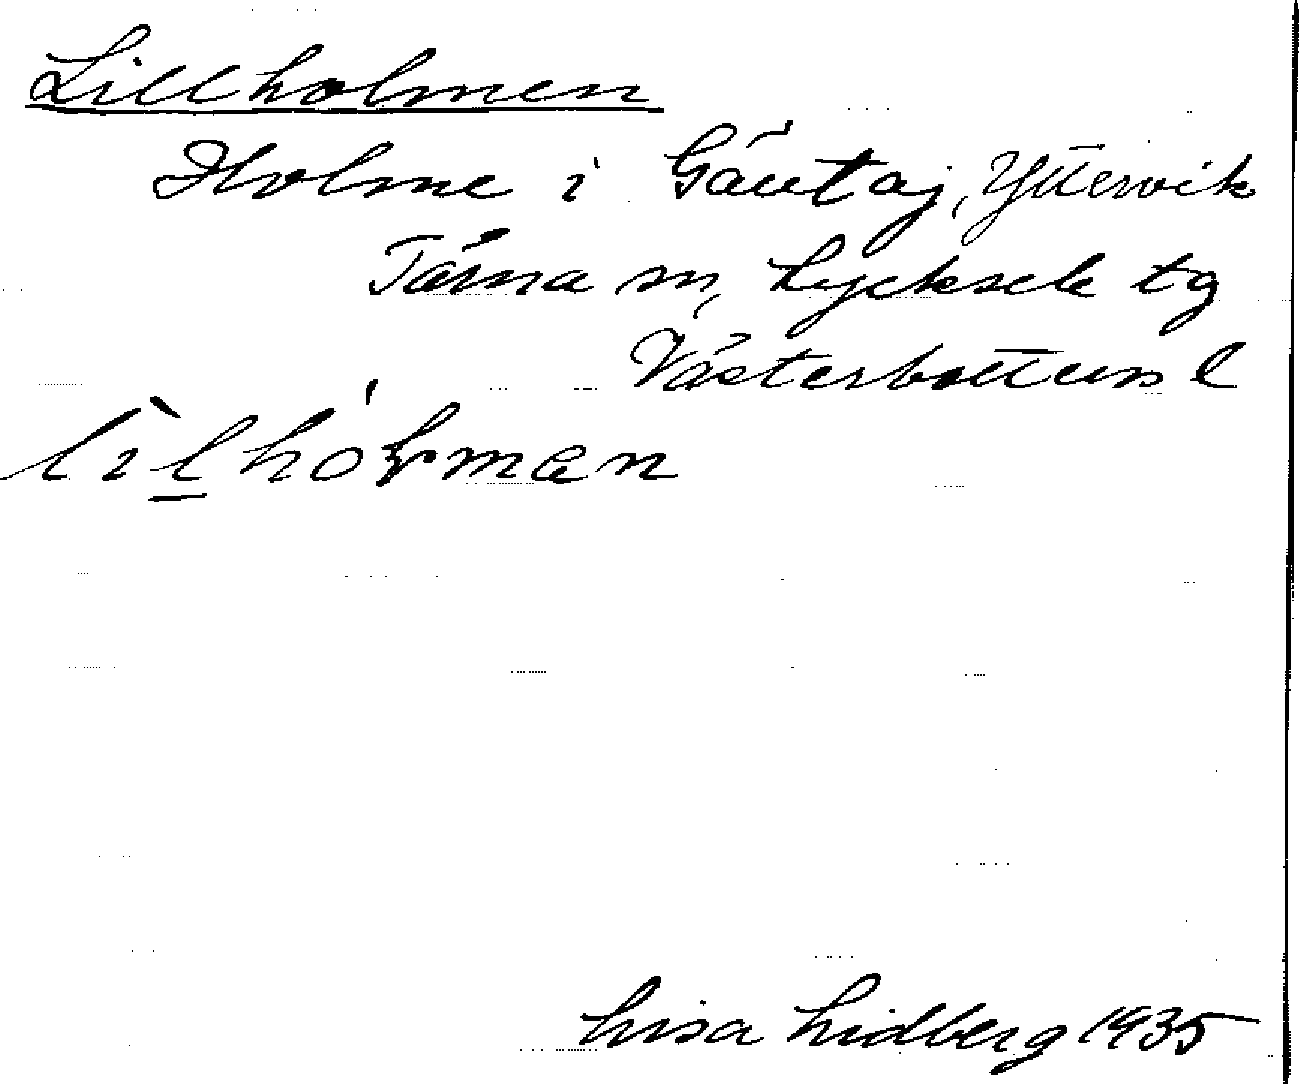 Lillholmen
Holme i Gäutaj, Yttervik
Tärna sn, Lycksele tg
Västerbottens l
lìlhóɽman
Lisa Lidberg 1935